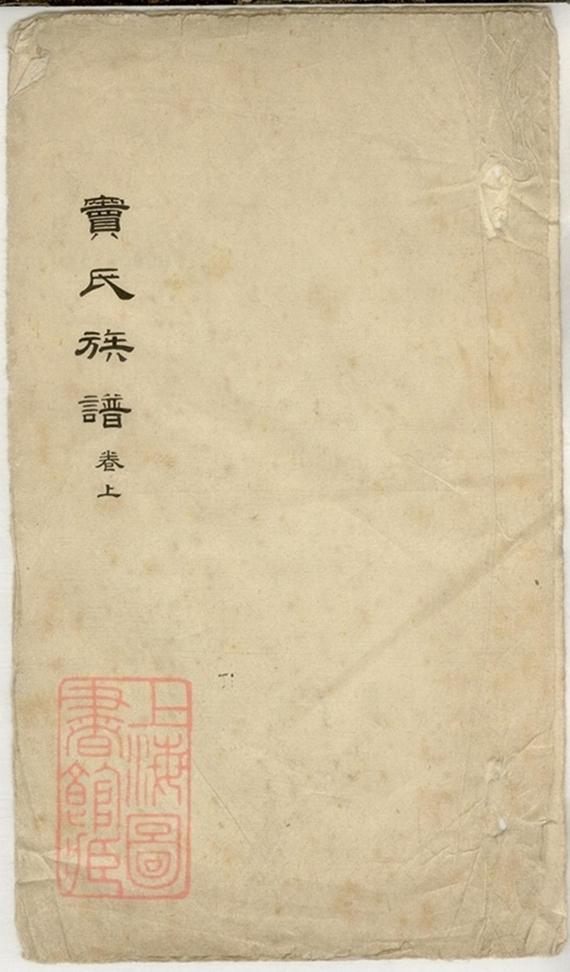 竇氏族譜 卷上
上海圖
書館藏